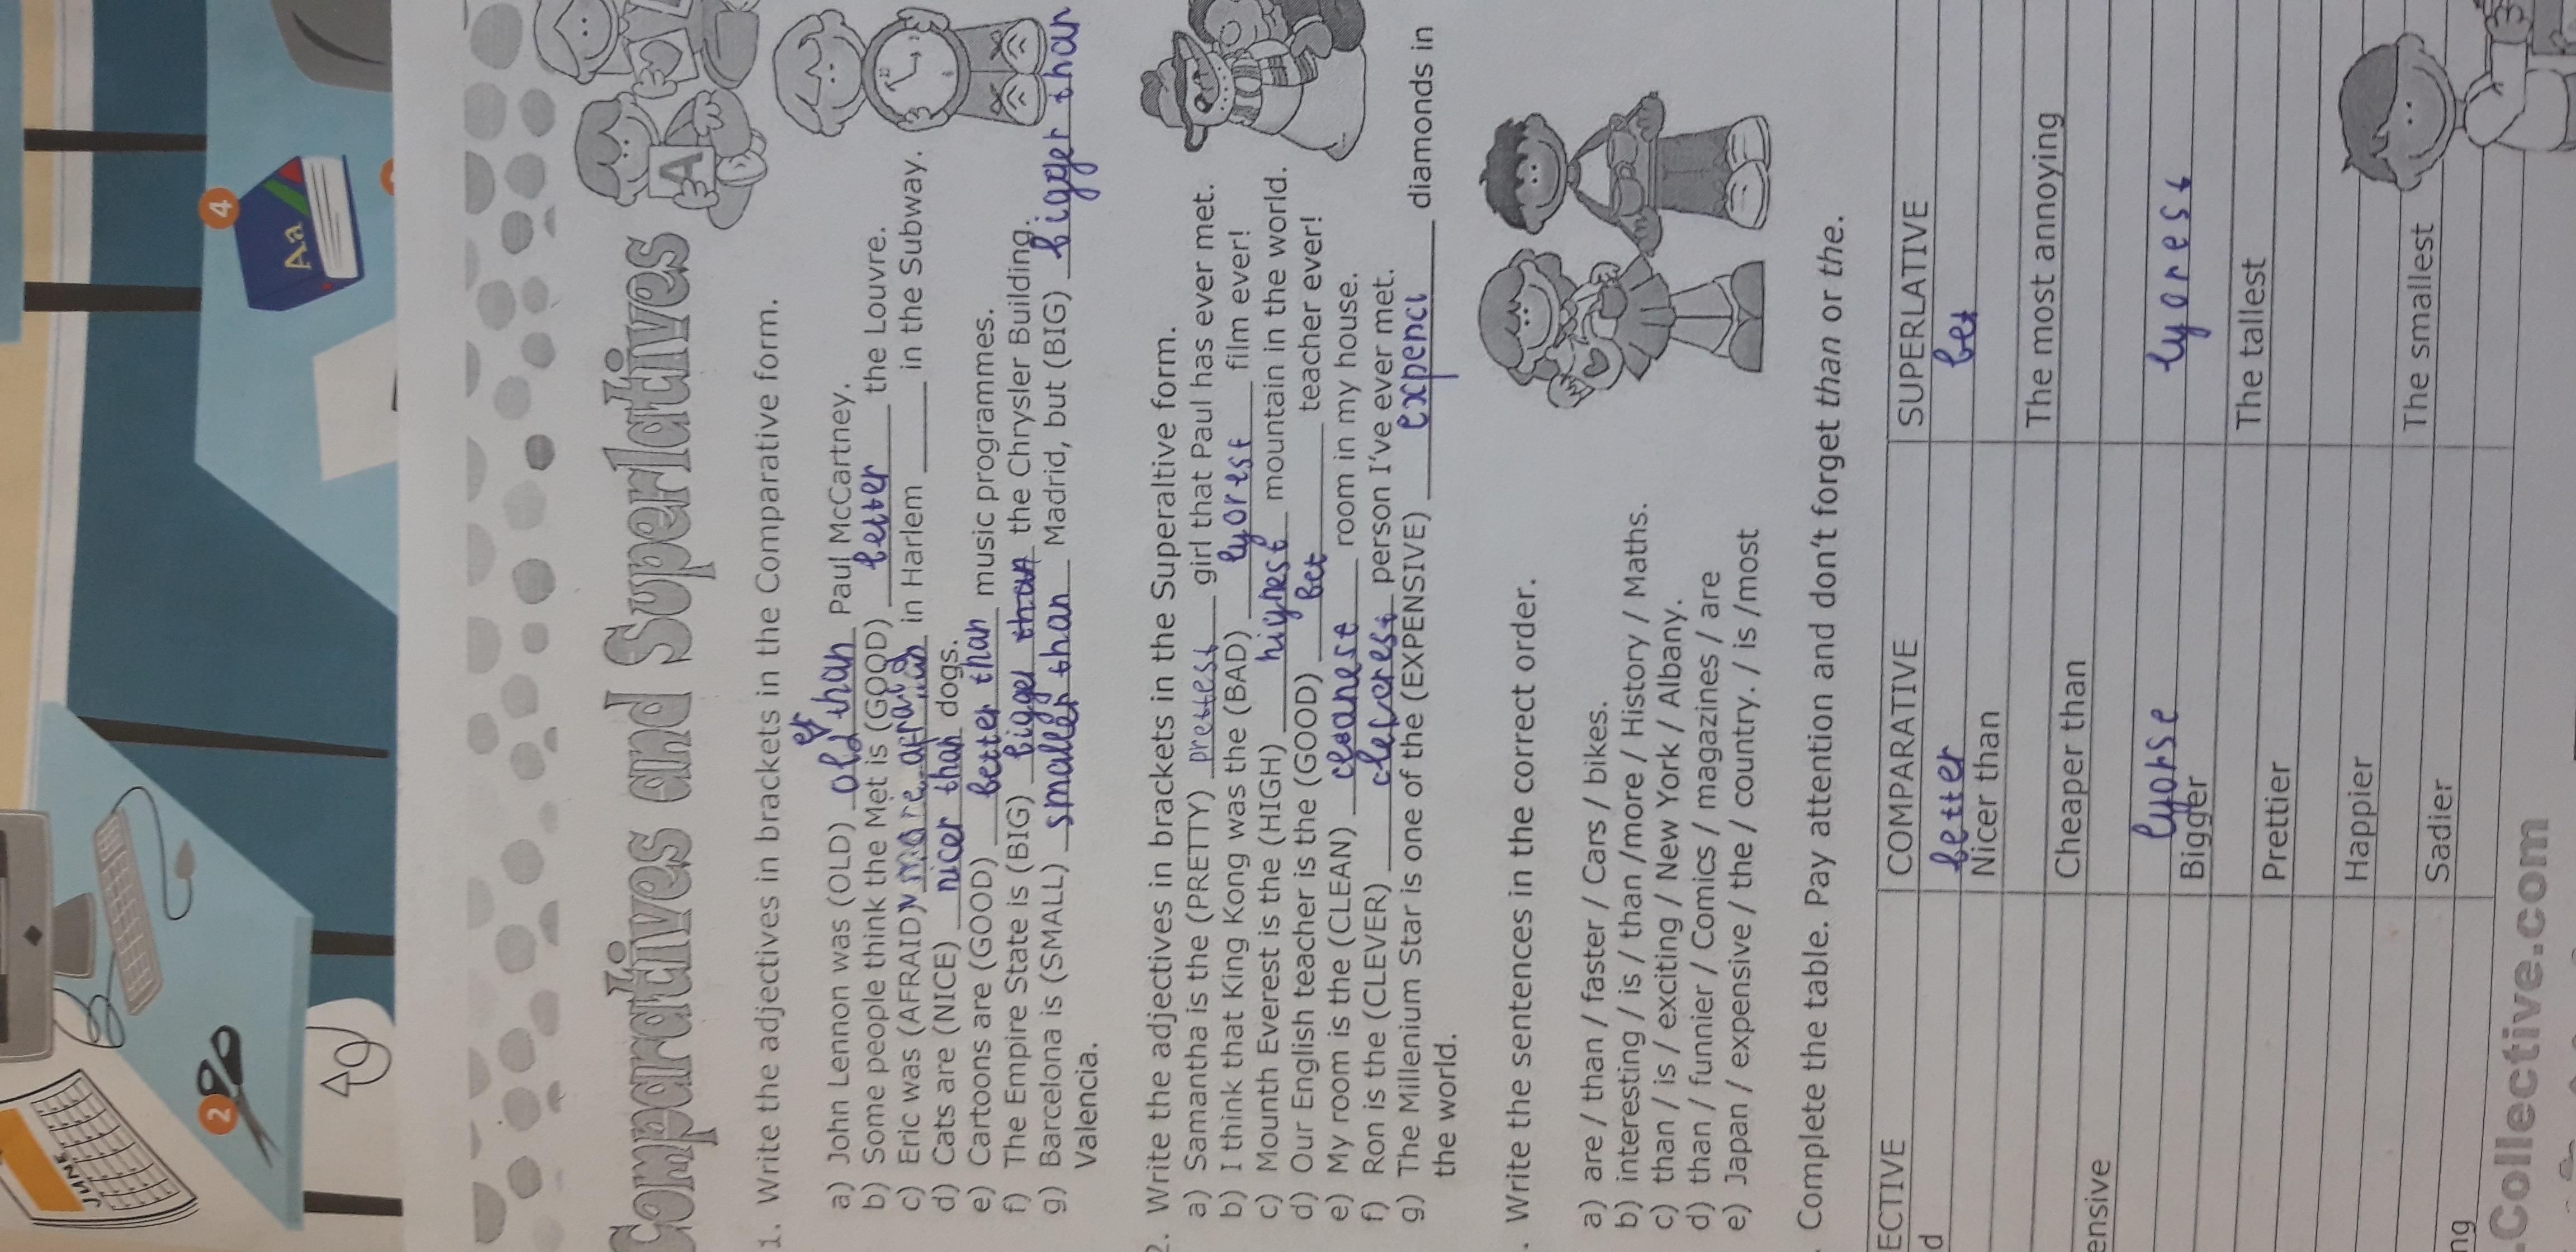 JUNE
2
4
Aa
A
Comparatives and Superlatives
1. Write the adjectives in brackets in the Comparative form.
a) John Lennon was (OLD) older than Paul McCartney.
b) Some people think the Met is (GOOD) better the Louvre.
c) Eric was (AFRAID) more afraid in Harlem ____ in the Subway.
d) Cats are (NICE) nicer than dogs.
e) Cartoons are (GOOD) better than music programmes.
f) The Empire State is (BIG) bigger than the Chrysler Building.
g) Barcelona is (SMALL) smaller than Madrid, but (BIG) bigger than
Valencia.
2. Write the adjectives in brackets in the Superaltive form.
a) Samantha is the (PRETTY) prettest girl that Paul has ever met.
b) I think that King Kong was the (BAD) lyorest film ever!
c) Mounth Everest is the (HIGH) highest mountain in the world.
d) Our English teacher is the (GOOD) bet teacher ever!
e) My room is the (CLEAN) cleanest room in my house.
f) Ron is the (CLEVER) cleverest person I've ever met.
g) The Millenium Star is one of the (EXPENSIVE) expenci diamonds in
the world.
. Write the sentences in the correct order.
a) are / than / faster / Cars / bikes.
b) interesting / is / than /more / History / Maths.
c) than / is / exciting / New York / Albany.
d) than / funnier / Comics / magazines / are
e) Japan / expensive / the / country. / is /most
. Complete the table. Pay attention and don't forget than or the.
ECTIVE COMPARATIVE SUPERLATIVE
d better bet
Nicer than
The most annoying
Cheaper than
ensive
lyorse lyorest
Bigger
The tallest
Prettier
Happier
The smallest
Sadier
ng
Collective.com